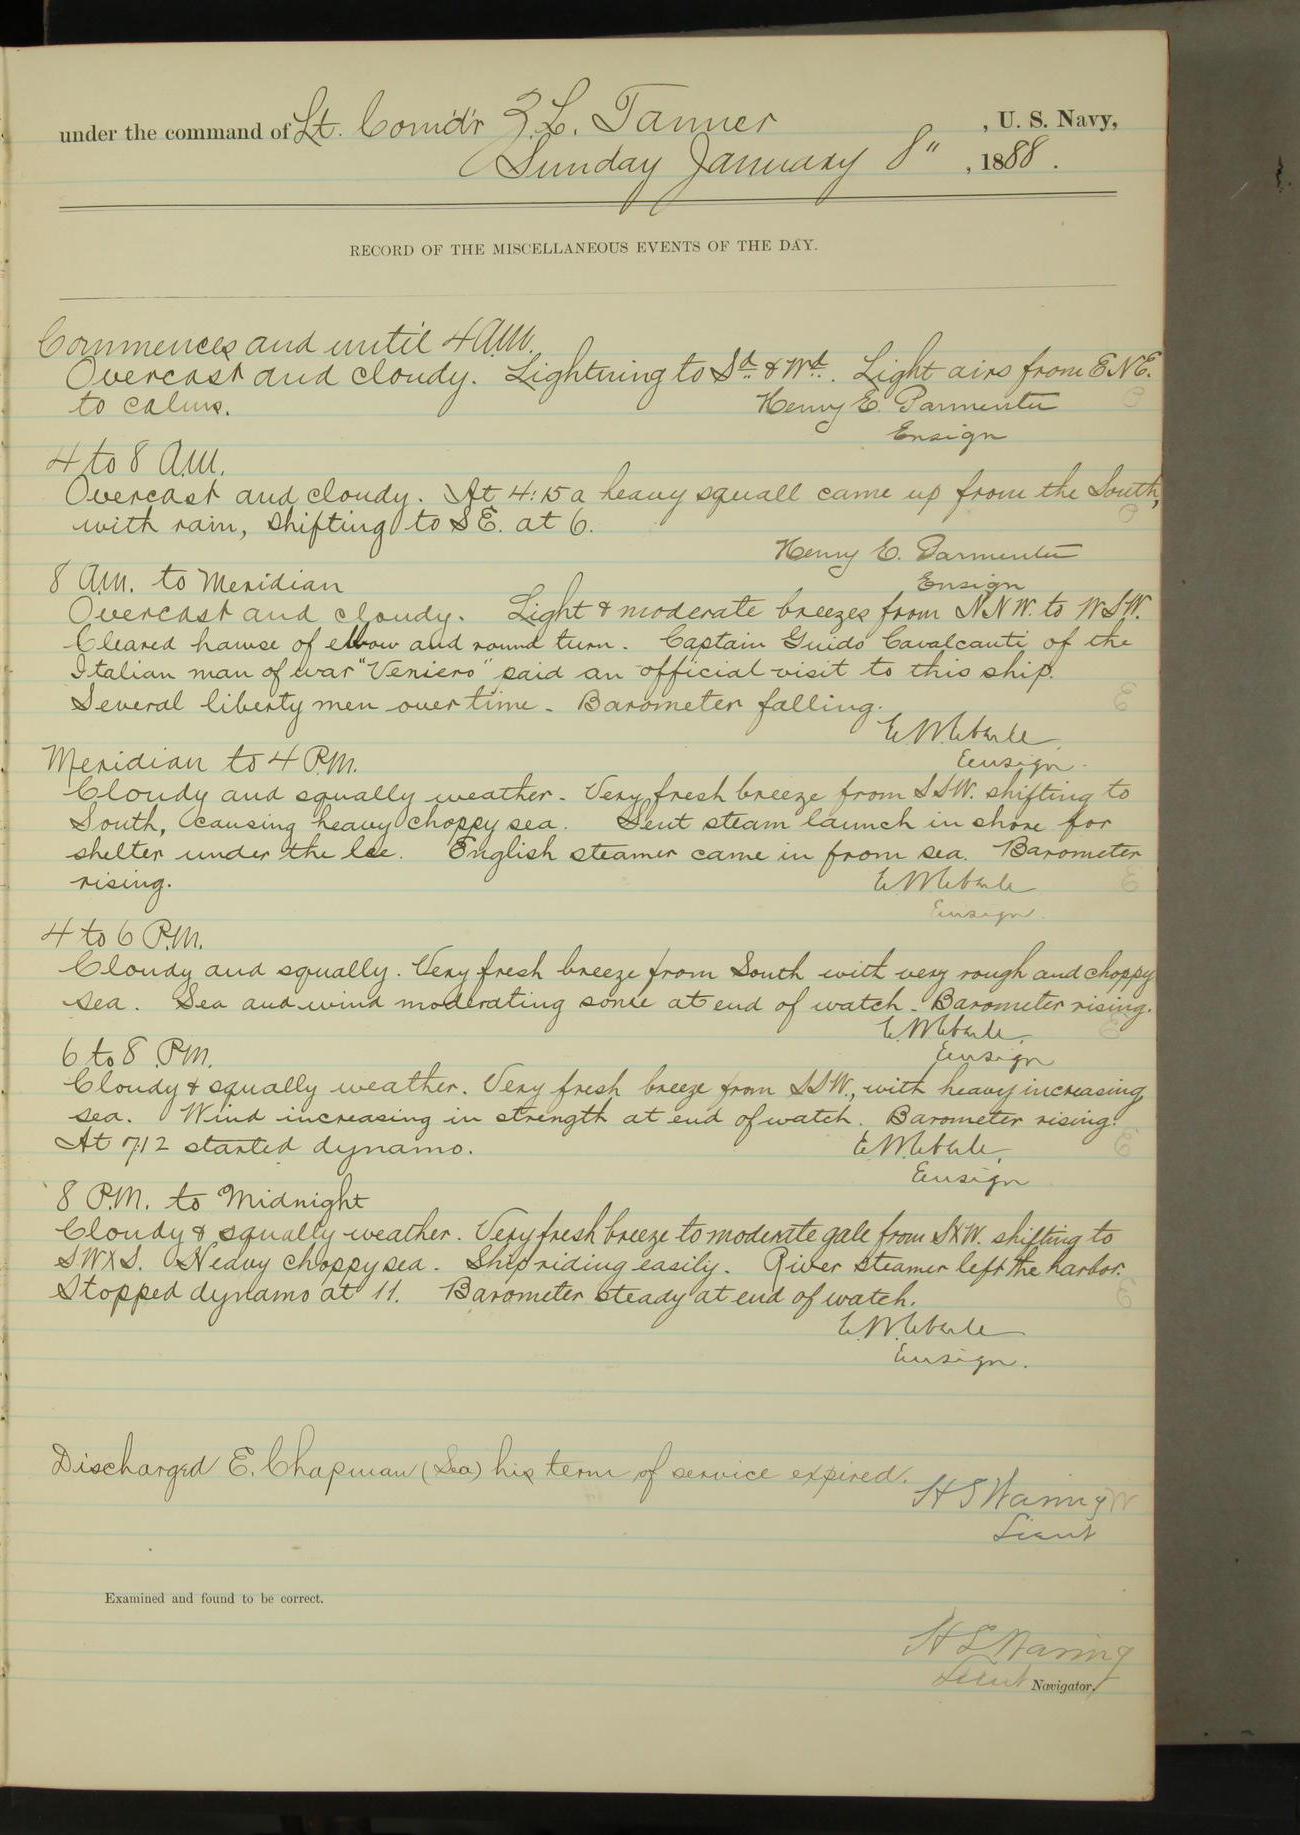 under the command of Lt. Comd'r Z. L. Tanner, U. S. Navy,
Sunday January 8", 1888.
RECORD OF THE MISCELLANEOUS EVENTS OF THE DAY.
Commences and until 4 A.M.
Overcast and cloudy. Lightning to Sd. & Wd. Light airs from ENE.
to calms. Henry E. Parmenter
Ensign
4 to 8 A.M.
Overcast and cloudy. At 4:15 a heavy squall came up from the South,
with rain, shifting to SE. at 6.
Henry E. Parmenter
Ensign
8 A.M. to Meridian
Overcast and cloudy. Light & moderate breezes from NNW. to WSW.
Cleared hawse of elbow and round turn. Captain Guido Cavalcanti of the
Italian man of war "Veniero" paid an official visit to this ship.
Several liberty men over time. Barometer falling.
E. W. Eberle
Ensign.
Meridian to 4 P.M.
Cloudy and squally weather. Very fresh breeze from SSW. shifting to
South, causing heavy choppy sea. Sent steam launch in shore for
shelter under the lee. English steamer came in from sea. Barometer
rising. E. W. Eberle
Ensign.
4 to 6 P.M.
Cloudy and squally. Very fresh breeze from South with very rough and choppy
sea. Sea and wind moderating some at end of watch. Barometer rising.
E. W. Eberle,
Ensign
6 to 8 P.M.
Cloudy & squally weather. Very fresh breeze from SSW., with heavy increasing
sea. Wind increasing in strength at end of watch. Barometer rising.
At 7.12 started dynamo. E. W. Eberle,
Ensign
8 P.M. to Midnight
Cloudy & squally weather. Very fresh breeze to moderate gale from SxW. shifting to
SWxS. Heavy choppy sea. Ship riding easily. River steamer left the harbor.
Stopped dynamo at 11. Barometer steady at end of watch.
E. W. Eberle
Ensign.
Discharged E. Chapman (Sea) his term of service expired.
H S Waring
Lieut
Examined and found to be correct.
H S Waring
Lieut Navigator.